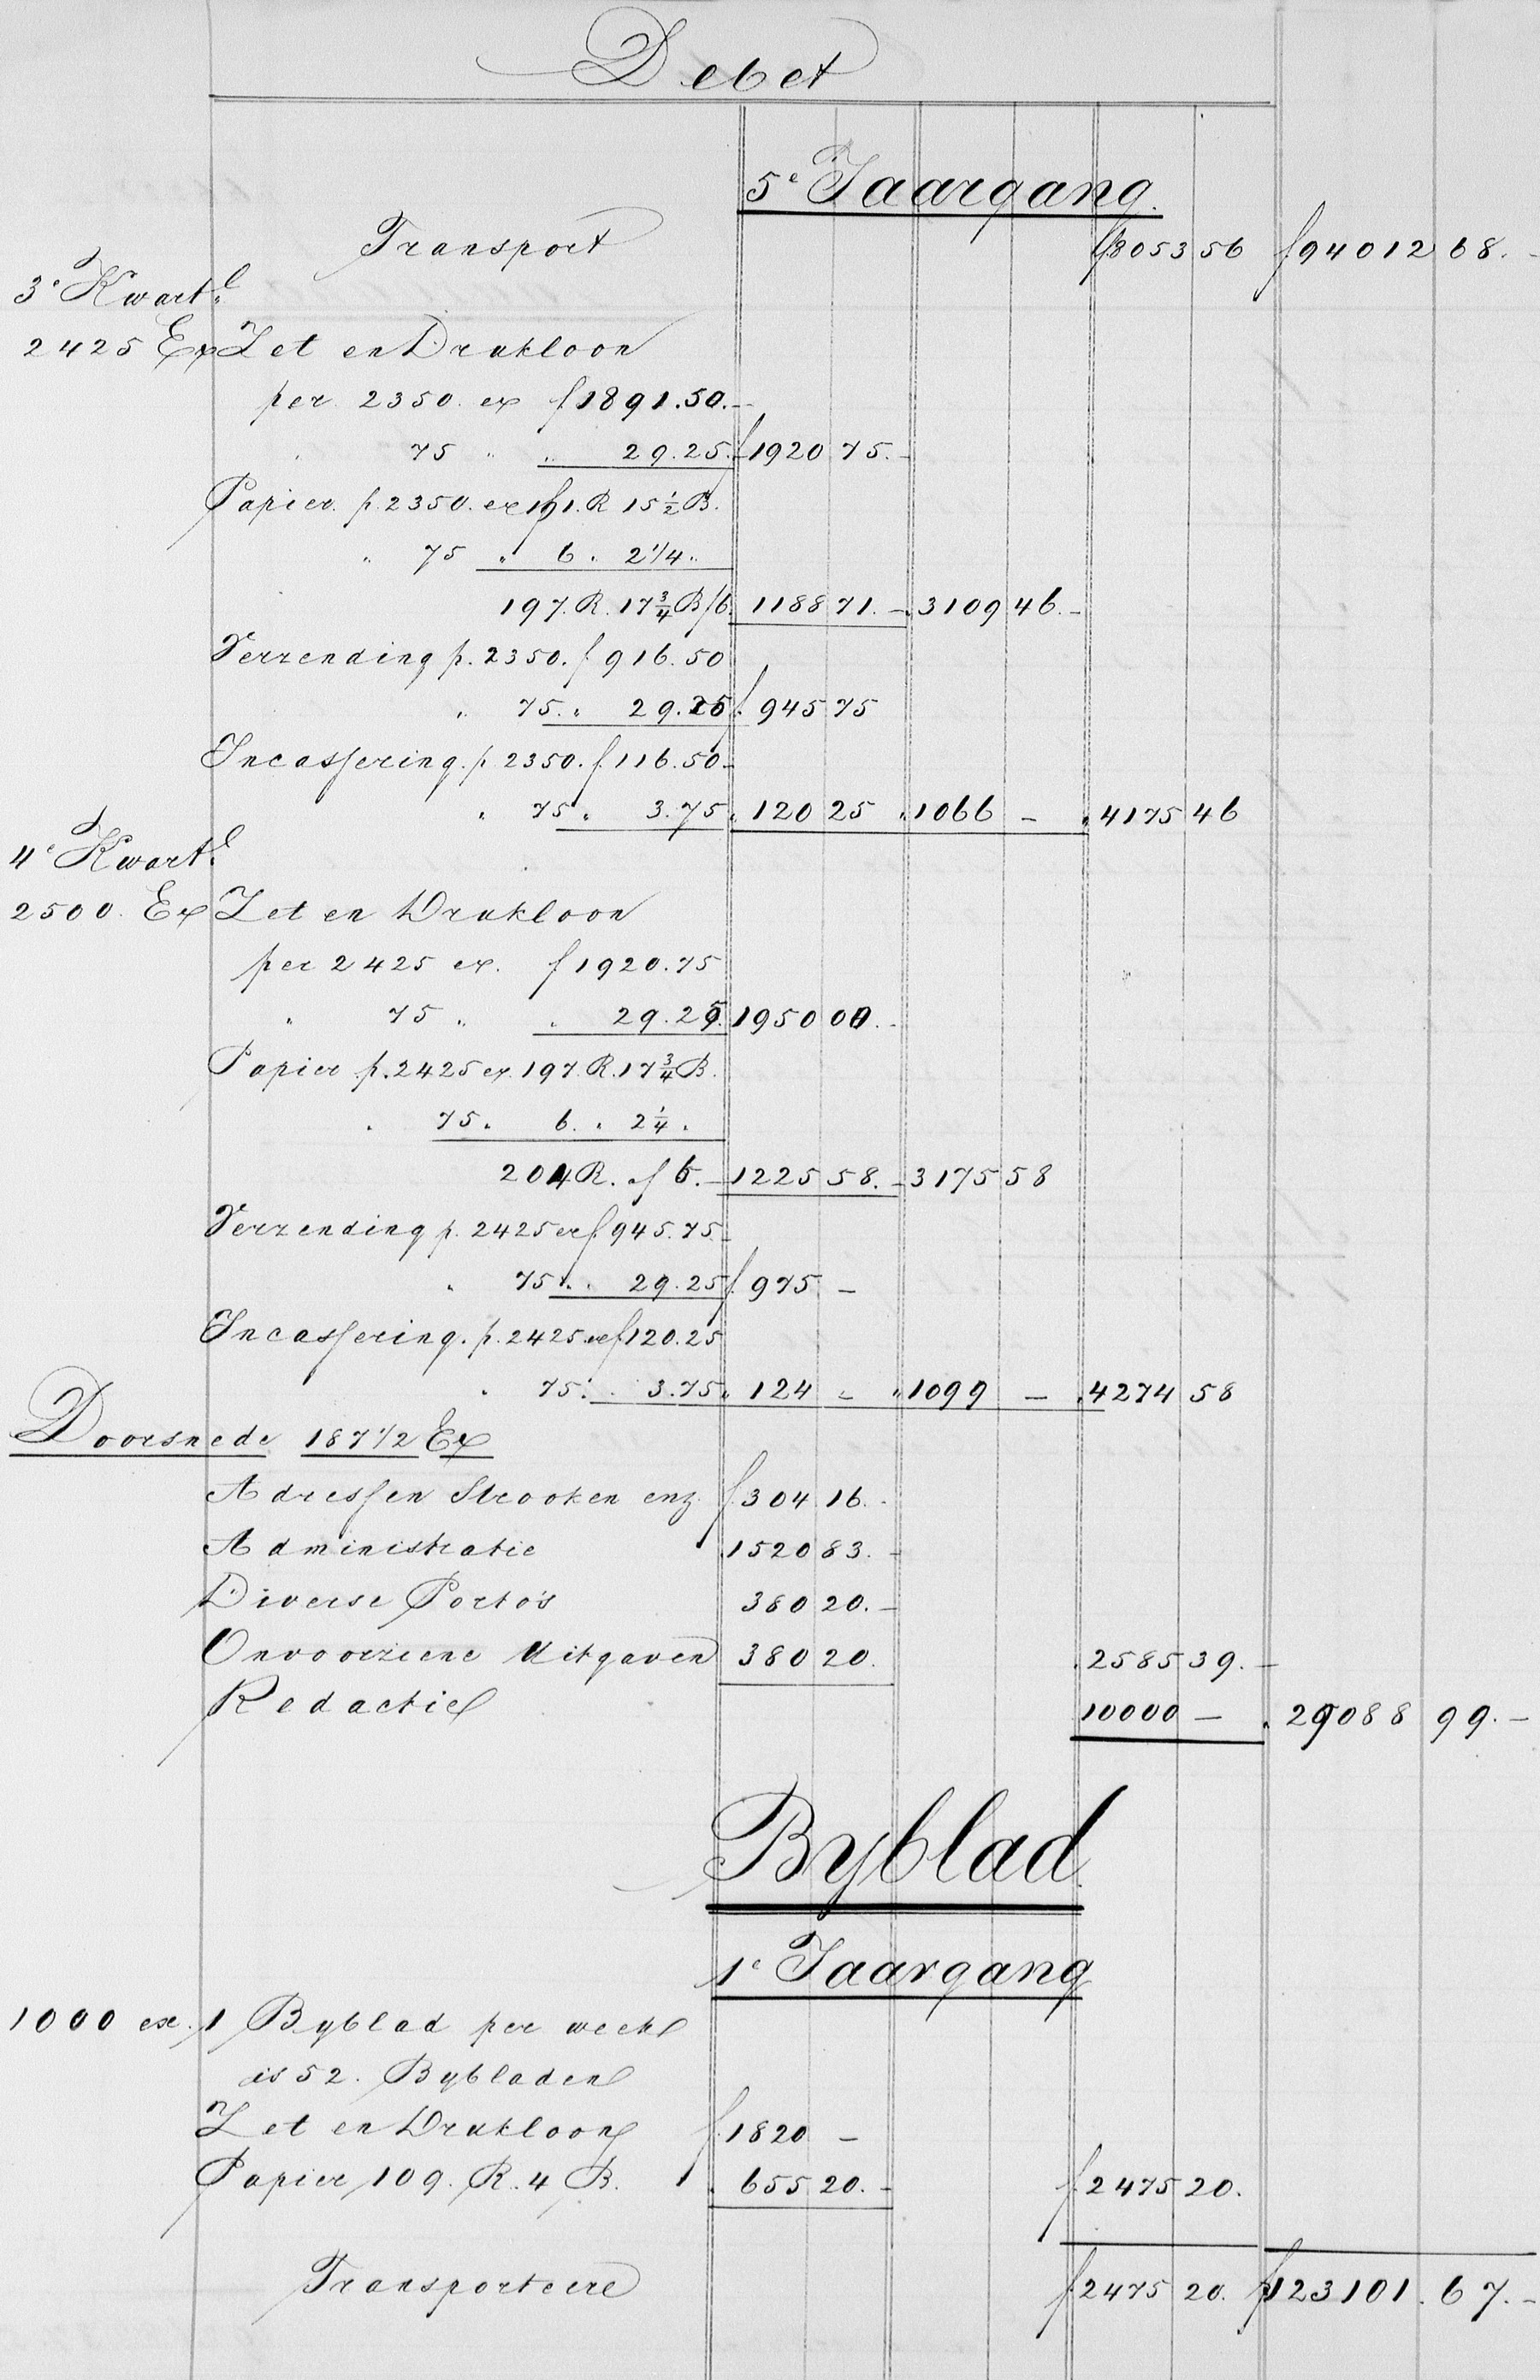 Debet
5e Jaargang.
Transport f8053 56 f94012 68.-
3e Kwartl
2425 Ex Zet en Drukloon
per 2350. ex f1891.50.-
" 75 " " 29.25.- f1920 75.-
Papier. p. 2350. ex 191. R 15½ B.
" 75 " 6 " 2¼ "
197. R. 17¾ B f6. 1188 71.- " 3109 46.-
Verzending p. 2350. f 916.50
" 75. " 29.25 f. 945 75
Incassering. p. 2350. f. 116.50-
" 75 " 3.75 " 120 25 " 1066 - " 4175 46
4e Kwartl
2500. Ex Zet en Drukloon
per 2425 ex. f1920.75
" 75 " " 29.25. 1950 00.-
Papier p. 2425 ex. 197. R. 17¾ B.
" 75 " 6. " 2¼ "
204 R. of 6.- 1225 58.- 3175 58
Verzending p. 2425 ex f. 945.75.-
" 75 " " 29.25 f. 975 -
Incassering. p. 2425 ex f. 120.25
" 75. " 3.75 " 124 - " 1099 - " 4274 58
Doorsnede 187½ Ex
Adressen Strooken enz. f. 304 16.-
Administratie 1520 83.-
Diverse Porto's 380 20.-
Onvoorziene Uitgaven 380 20. 2585 39.-
Redactie 10000 - " 29088 99.-
Byblad
1e Jaargang
1000 ex. 1 Byblad per week
is 52. Bybladen
Zet en Drukloon f. 1820 -
Papier 109. R. 4 B. " 655 20.- f. 2475 20.
Transporteere f. 2475 20. f123101.67.-